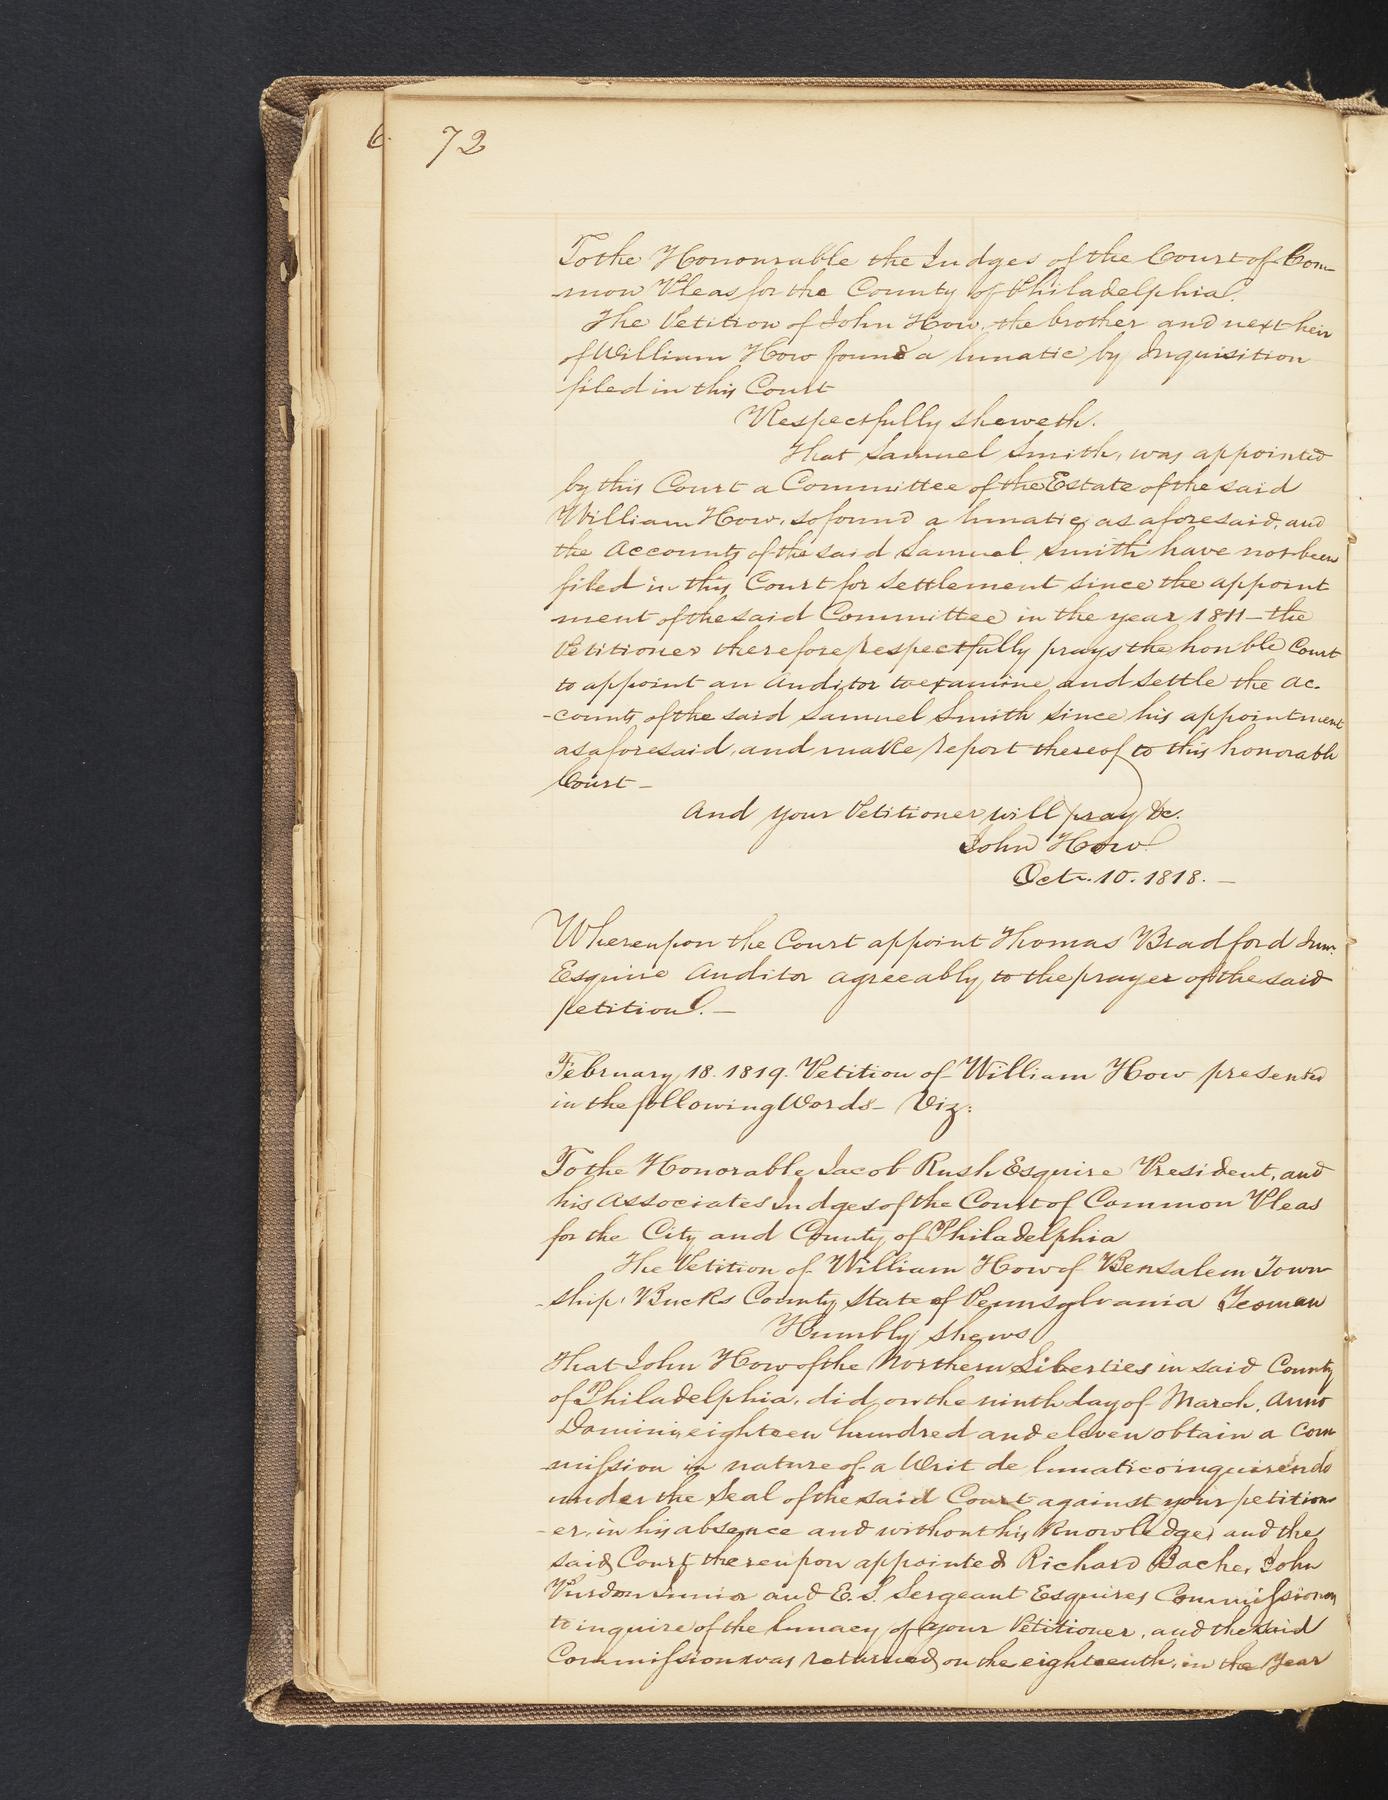 6
72
To the Honourable the Judges of the Court of Com-
mon Pleas for the County of Philadelphia.
The Petition of John How, the brother and next heir
of William How found a lunatic by Inquisition
filed in this Court
Respectfully sheweth.
That Samuel Smith, was appointed
by this Court a Committee of the Estate of the said
William How, so found a lunatic, as aforesaid, and
the Accounts of the said Samuel Smith have not been
filed in this Court for settlement since the appoint
ment of the said Committee in the year 1811 — the
Petitioner therefore respectfully prays the honble Court
to appoint an Auditor to examine and settle the ac-
-counts of the said Samuel Smith since his appointment
as aforesaid, and make report thereof to this honorable
Court —
And your Petitioner will pray &c.
John How
Octr. 10. 1818. —
Whereupon the Court appoint Thomas Bradford Junr.
Esquire Auditor agreeably to the prayer of the said
petition. —
February 18. 1819. Petition of William How presented
in the following Words — Viz:
To the Honorable Jacob Rush Esquire President, and
his Associates Judges of the Court of Common Pleas
for the City and County of Philadelphia
The Petition of William How of Bensalem Town
-ship, Bucks County State of Pennsylvania Yeoman
Humbly shews
That John How of the Northern Liberties in said County
of Philadelphia, did on the ninth day of March, Anno
Domini eighteen hundred and eleven obtain a Com
-mission in nature of a Writ de lunatico inquirendo
under the Seal of the said Court against your petition
-er, in his absence and without his Knowledge, and the
said Court thereupon appointed Richard Bache, John
Purdon Junior and E. S. Sergeant Esquires Commissioners
to inquire of the lunacy of your Petitioner, and the said
Commission was returned on the eighteenth, in the Year